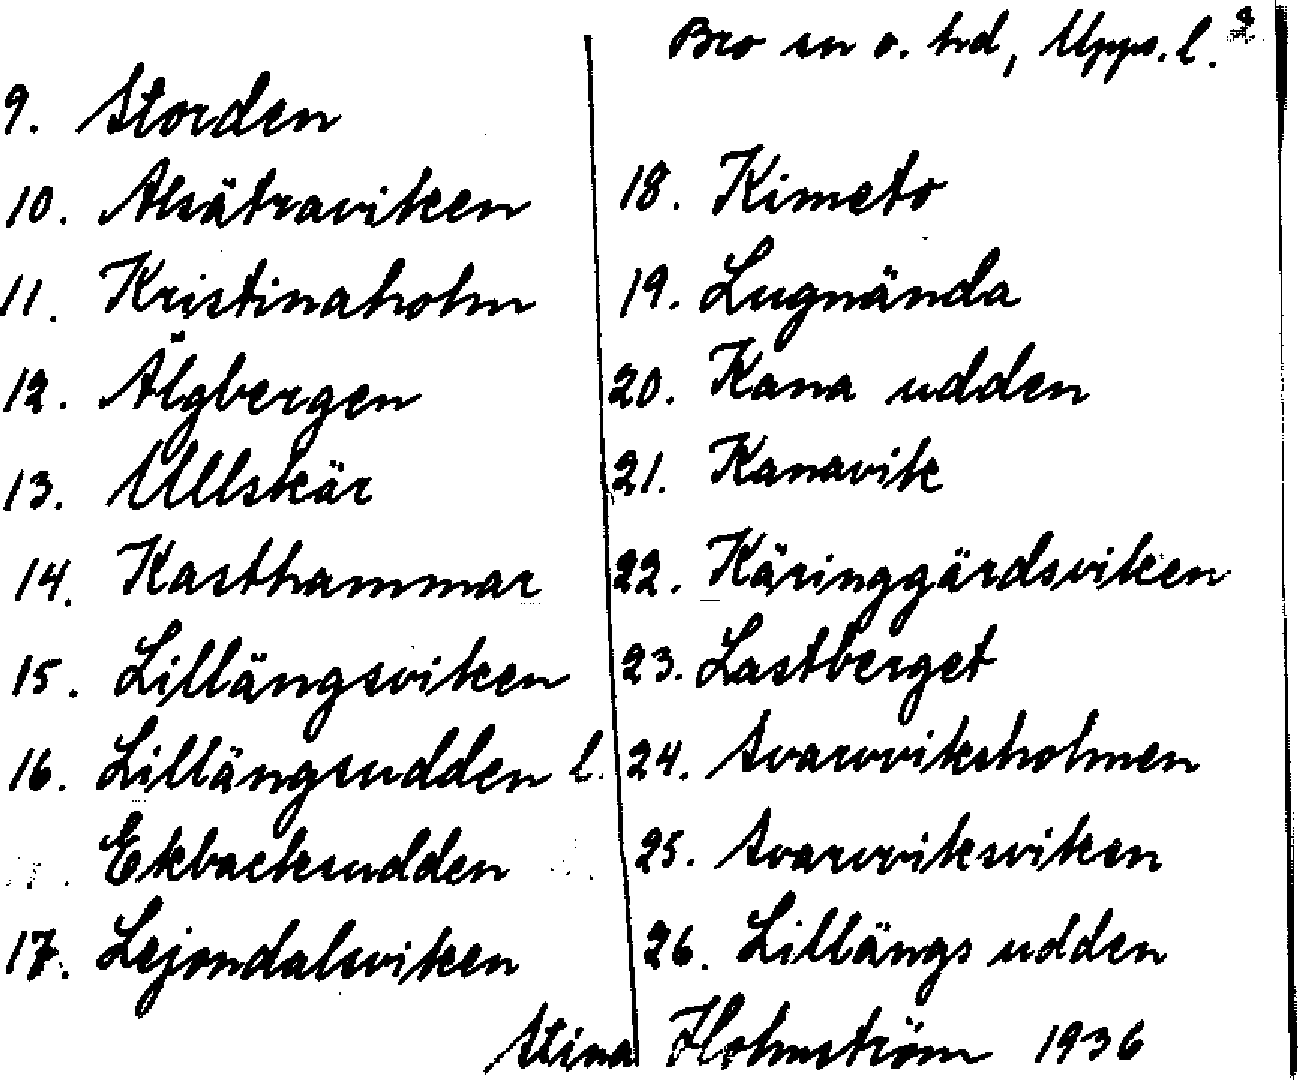 Bro sn o. hd, Upps. l. 2
9. Storden
10. Alsätraviken
11. Kristinaholm
12. Älgbergen
13. Ullskär
14. Kasthammar
15. Lillängsviken
16. Lillängsudden l.
Ekbacksudden
17. Lejondalsviken
18. Kimeto
19. Lugnända
20. Kana udden
21. Kanavik
22. Käringgärdsviken
23. Lastberget
24. Svarvviksholmen
25. Svarvviksviken
26. Lillängs udden
Stina Holmström 1936